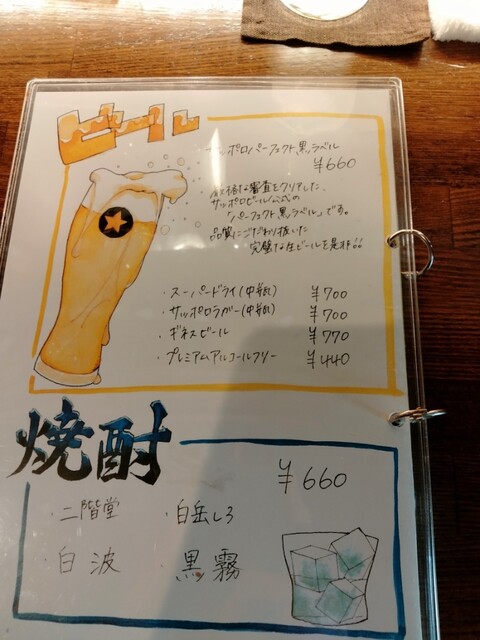 ビール
サッポロパーフェクト黒ラベル
¥660
厳格な審査をクリアした、
サッポロビール公式の
「パーフェクト黒ラベル」です。
品質にこだわり抜いた
完璧な生ビールを是非!!
・スーパードライ(中瓶) ¥700
・サッポロラガー(中瓶) ¥700
・ギネスビール ¥770
・プレミアムアルコールフリー ¥440
焼酎
¥660
・二階堂 ・白岳しろ
・白波 ・黒霧